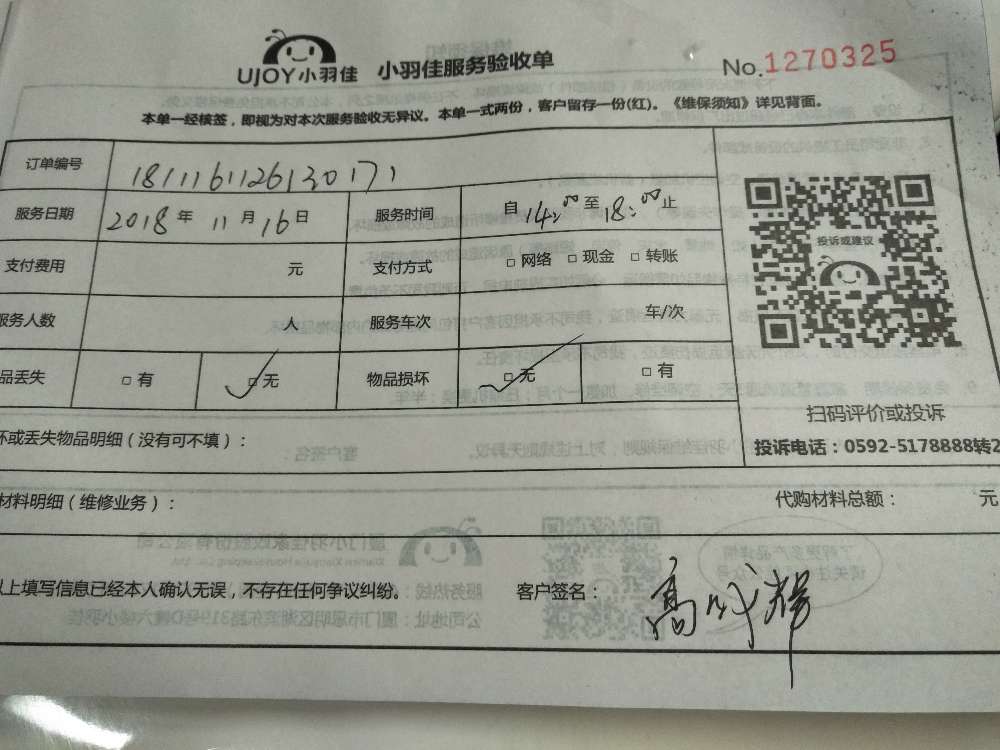 UJOY小羽佳 小羽佳服务验收单 No.1270325
本单一经核签，即视为对本次服务验收无异议。本单一式两份，客户留存一份(红)。《维保须知》详见背面。
订单编号 1811161126130171
服务日期 2018 年 11 月 16 日 服务时间 自 14:00 至 18:00 止
投诉或建议
支付费用 元 支付方式 □ 网络 □ 现金 □ 转账
服务人数 人 服务车次 车/次
品丢失 □ 有 □ 无 物品损坏 □ 无 □ 有
扫码评价或投诉
坏或丢失物品明细（没有可不填）：
投诉电话：0592-5178888转2
材料明细（维修业务）： 代购材料总额： 元
以上填写信息已经本人确认无误，不存在任何争议纠纷。 客户签名：